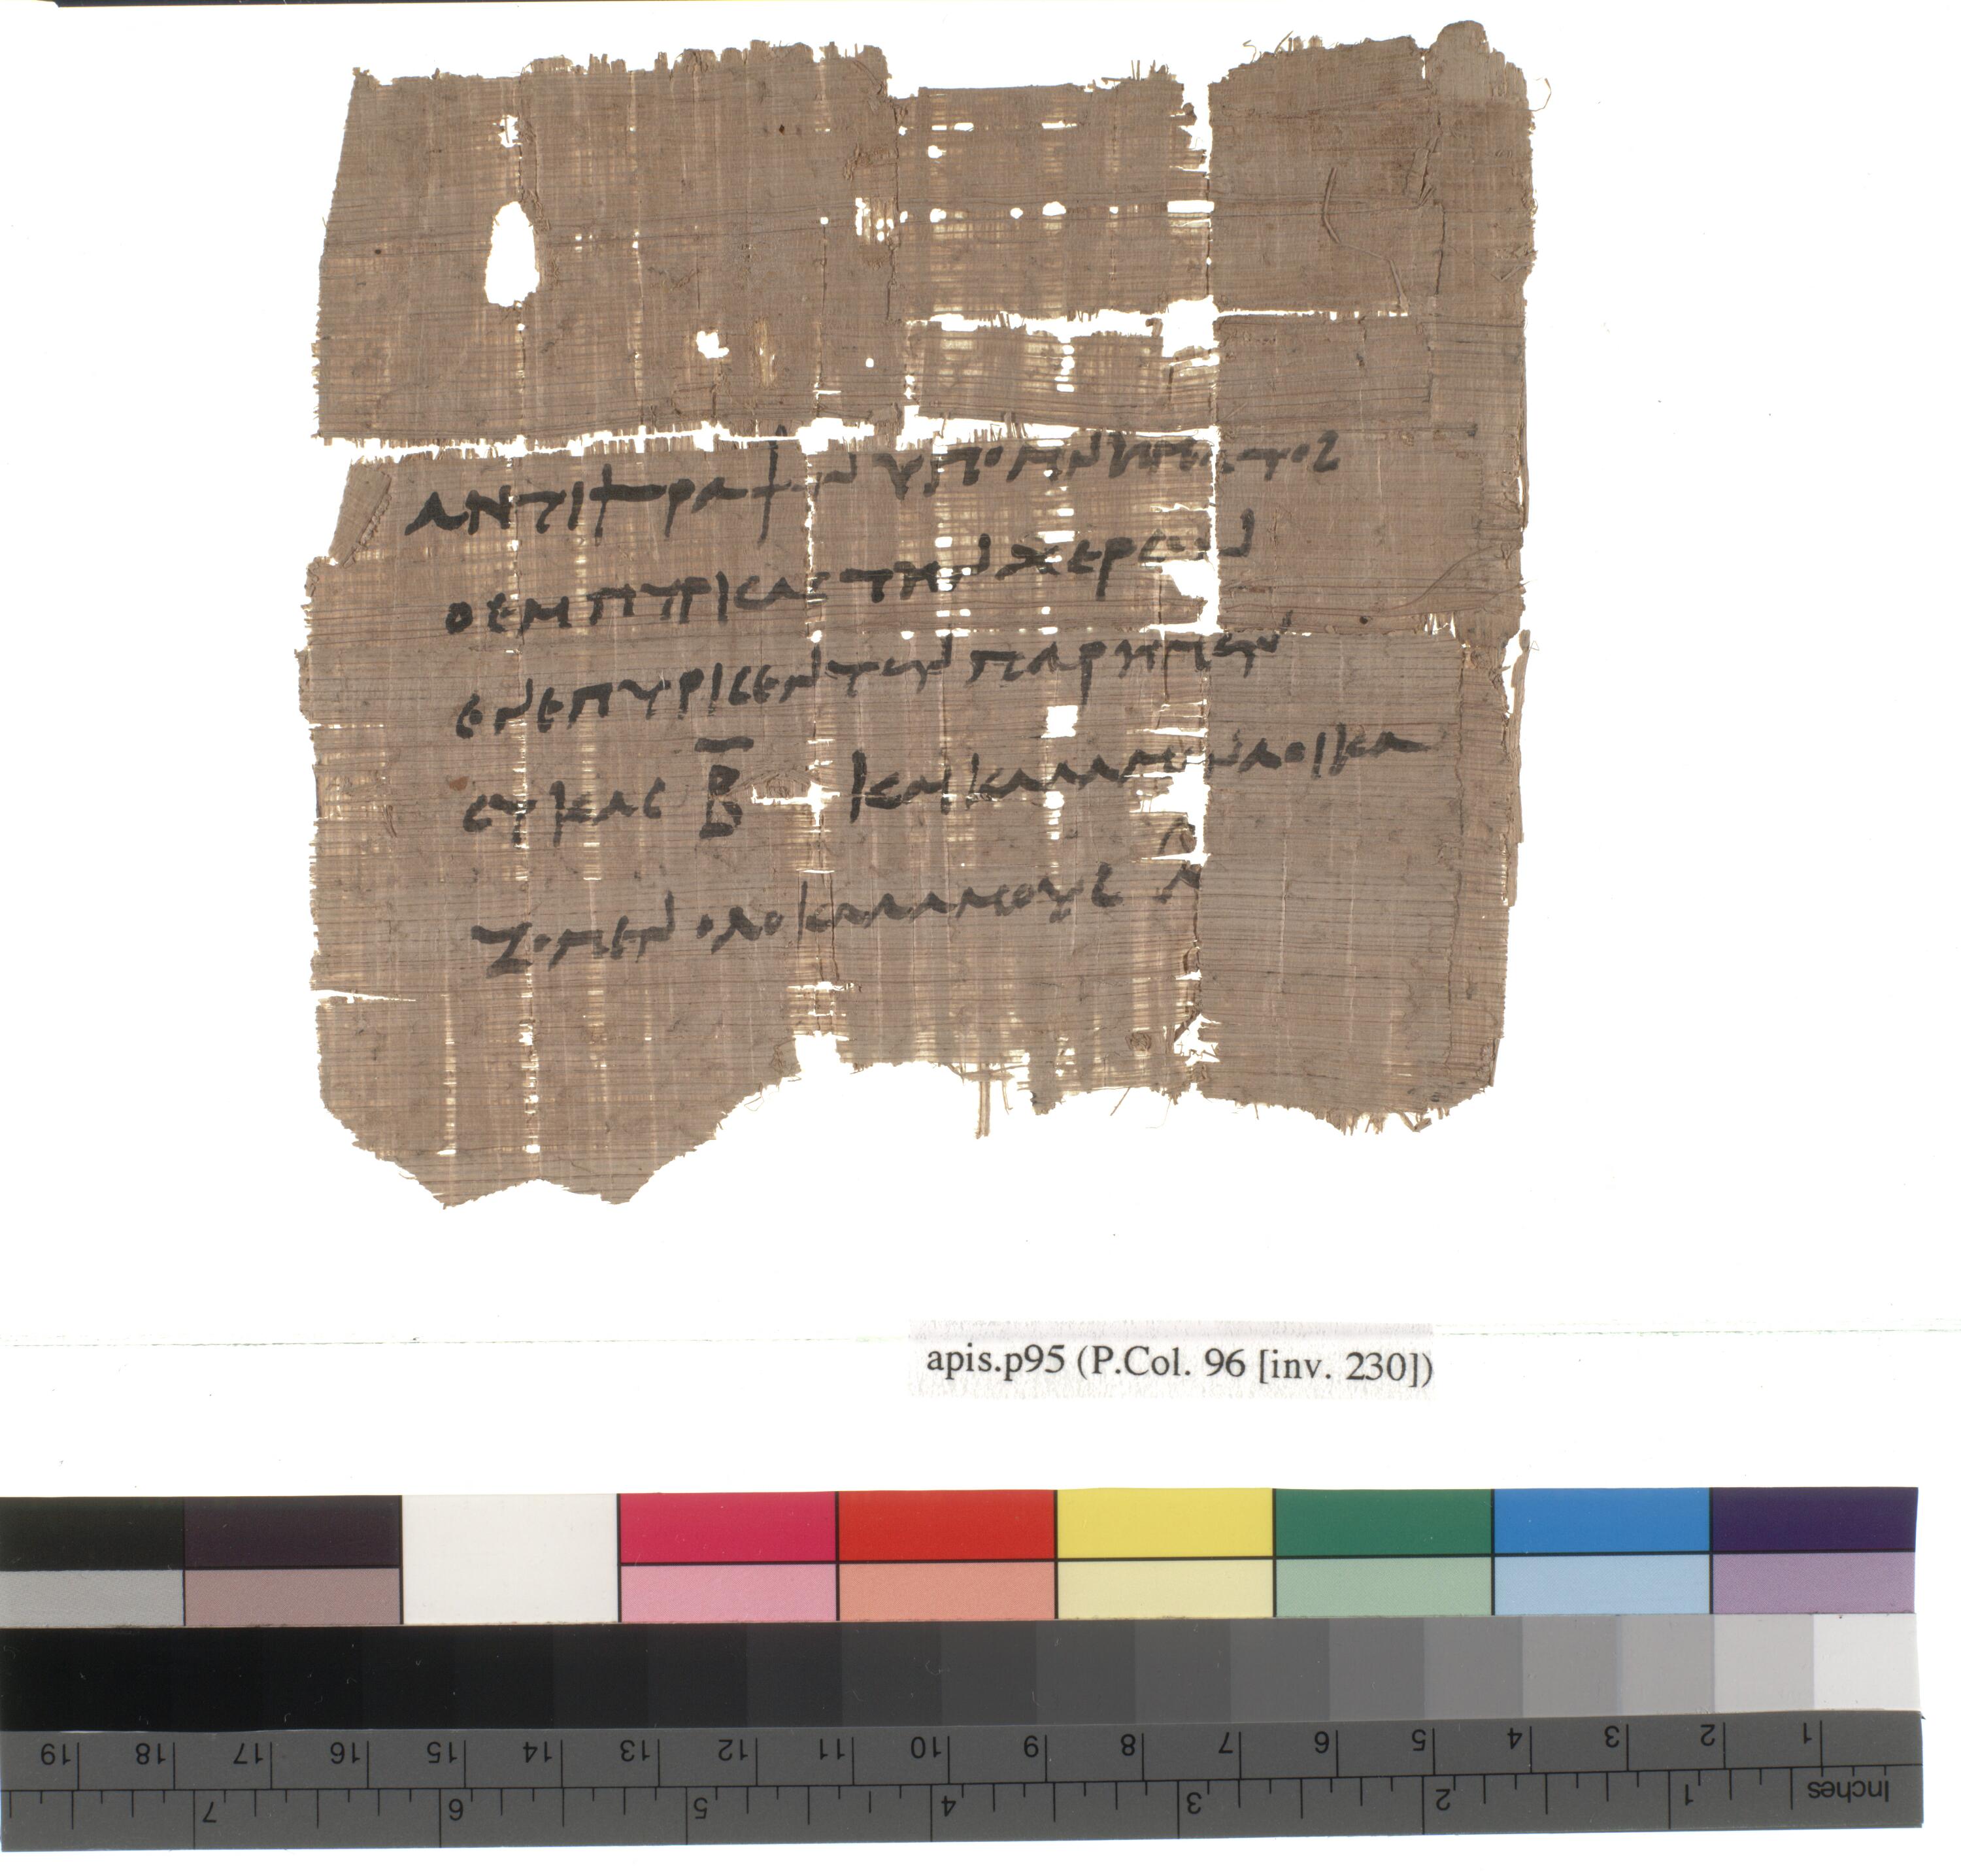 ΑΝΤΙΓΡΑΦΟΝ ΥΠΟΜΝΗΜΑΤΟΣ
Ο ΕΜΠΥΡΙΣΑΣ ΤΗΝ ΧΕΡΣΟΝ
ΕΝΕΠΥΡΙΣΕΝ ΤΩΝ ΠΑΡ ΗΜΩΝ
ΣΥΚΑΣ Β ΚΑΙ ΚΑΛΑΜΩΝΑ
ΟΛΟΚΑΛΑΜΟΥΣ
apis.p95 (P.Col. 96 [inv. 230])
19 18 17 16 15 14 13 12 11 10 9 8 7 6 5 4 3 2 1
7 6 5 4 3 2 1 Inches